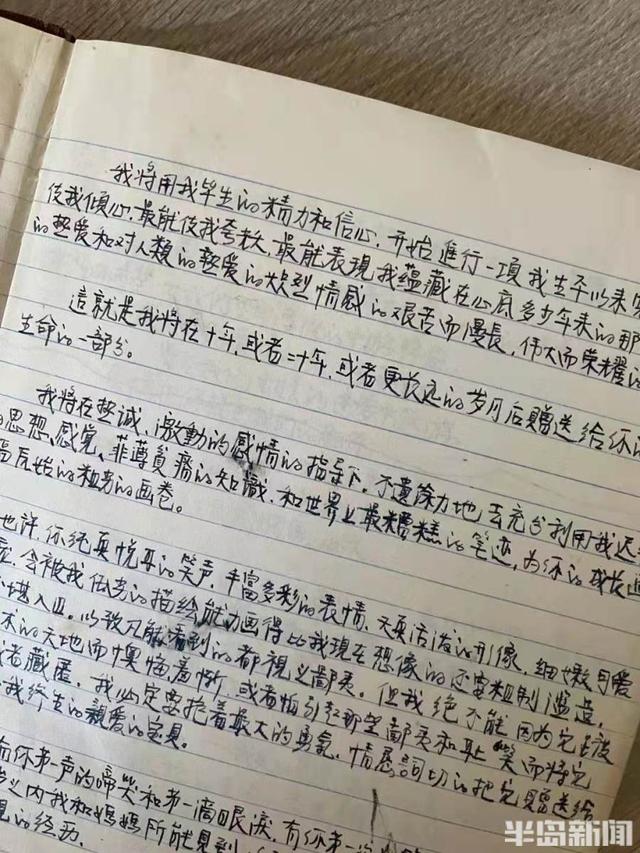 我将用我毕生的精力和信心，开始進行一項我生平以来
使我傾心，最能使我夸耀，最能表現我蕴藏在心底多少年来的那
的熱爱和对人類的熱爱的炽烈情感的艰苦而漫長，伟大而荣耀的
這就是我将在十年，或者二十年，或者更长远的岁月后赠送给你的
生命的一部分。
我将在熱诚、激動的感情的指导下，不遺馀力地去充分利用我迟
思想、感觉、菲薄貧瘠的知識，和世界上最糟糕的笔迹，为你的成长画
原始的粗劣的画卷。
也许，你纯真悦耳的笑声，丰富多彩的表情，天真活泼的形像，细嫩可爱
会被我低劣的描绘能力画得比我现在想像的还要粗制滥造，
堪入目。以致只能看到的都視义鄙夷。但我绝不能因为它被
术的天地而懊悔羞惭，或者怕引起那些鄙夷和耻笑而将它
者藏匿，我必定要抱着最大的勇氣，情恳詞切的把它赠送给
我终生的親爱的宝貝。
你第一声的啼笑和第一滴眼淚，有你第一次
岁以内我和妈妈所能見到
的经历。
半岛新闻